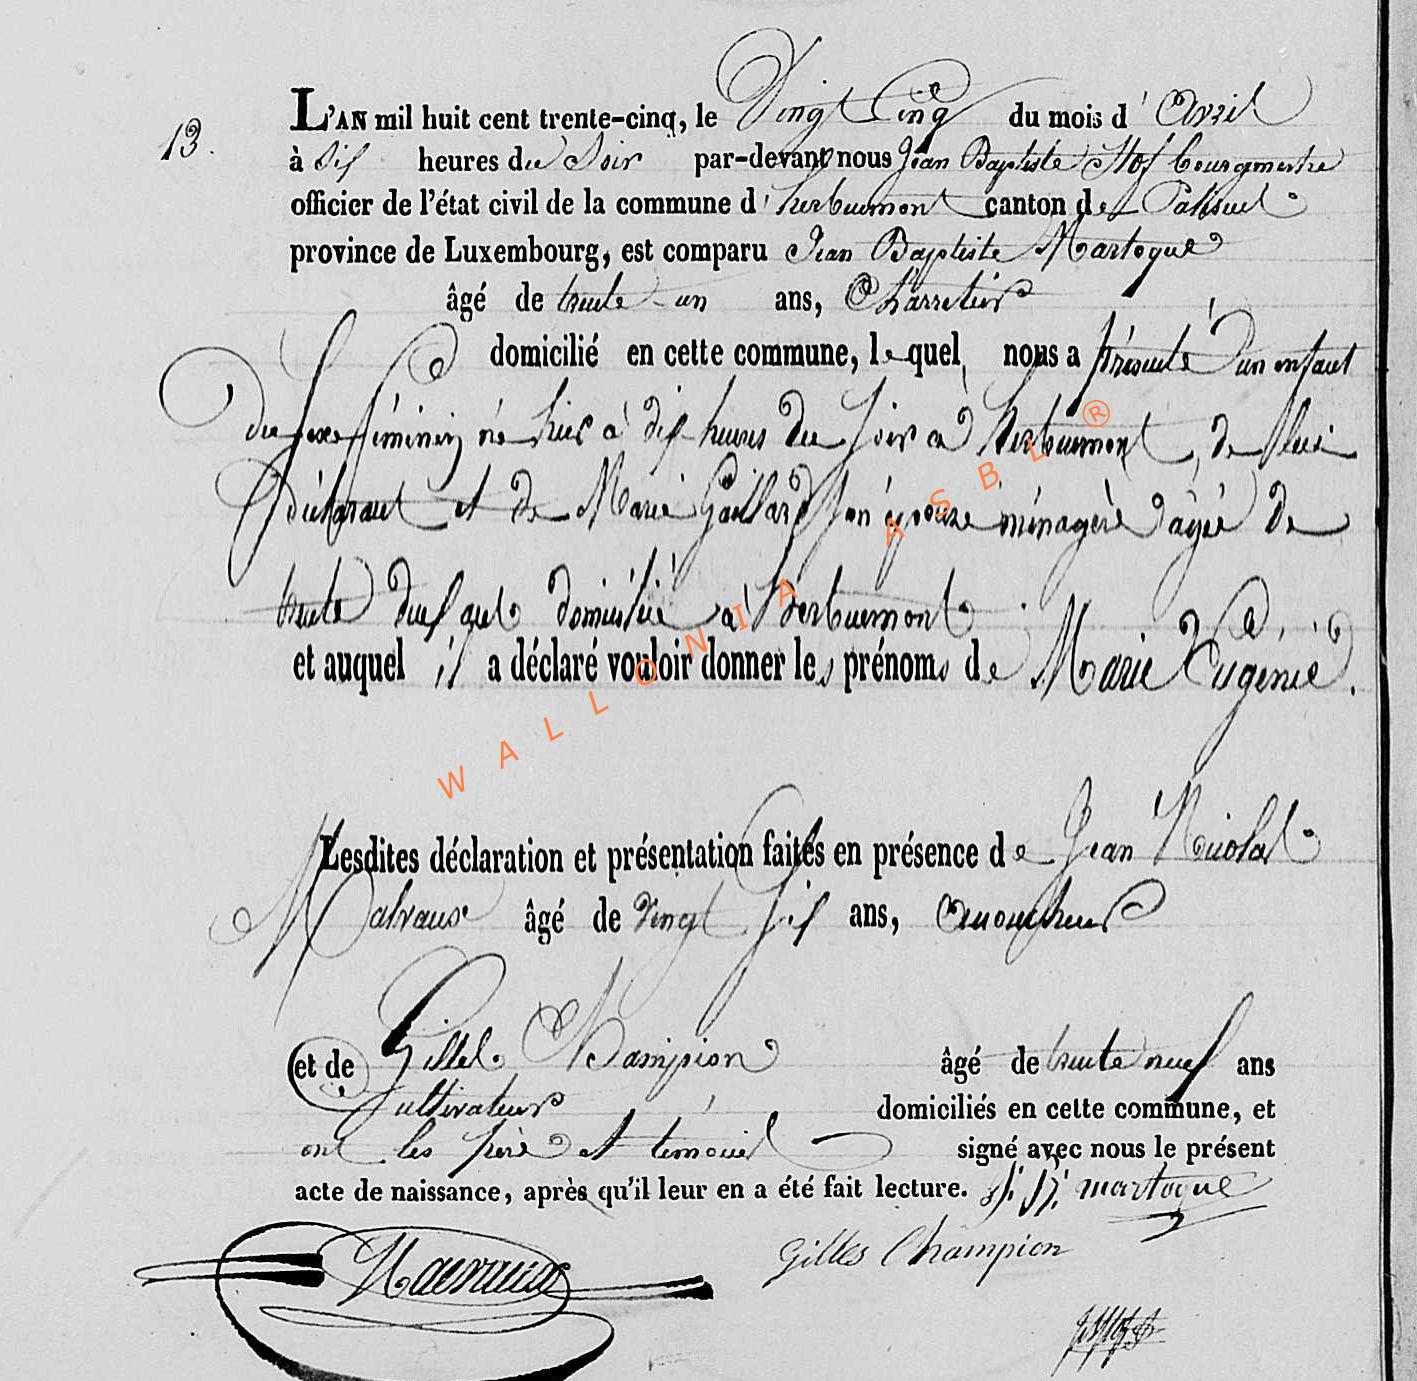 13.
L'AN mil huit cent trente-cinq, le Vingt Cinq du mois d'Avril
à six heures du Soir par-devant nous Jean Baptiste bourgmestre
officier de l'état civil de la commune d'herbeumont canton de Paliseul
province de Luxembourg, est comparu Jean Baptiste Martoque
âgé de trente-un ans, Charretier
domicilié en cette commune, lequel nous a présenté un enfant
du sexe féminin né hier à dix heures du soir à herbeumont, de lui
déclarant et de Marie Gaillard son épouse ménagère âgée de
trente domicilié à herbeumont
et auquel il a déclaré vouloir donner les prénoms de Marie Eugénie.
Lesdites déclaration et présentation faites en présence de Jean Nicolas
Malvaux âgé de vingt six ans, accoucheur
et de Gilles Champion âgé de trente neuf ans
Cultivateur domiciliés en cette commune, et
ont les père et témoins signé avec nous le présent
acte de naissance, après qu'il leur en a été fait lecture. martoque
Gilles Champion
WALLONIA ASBL ®